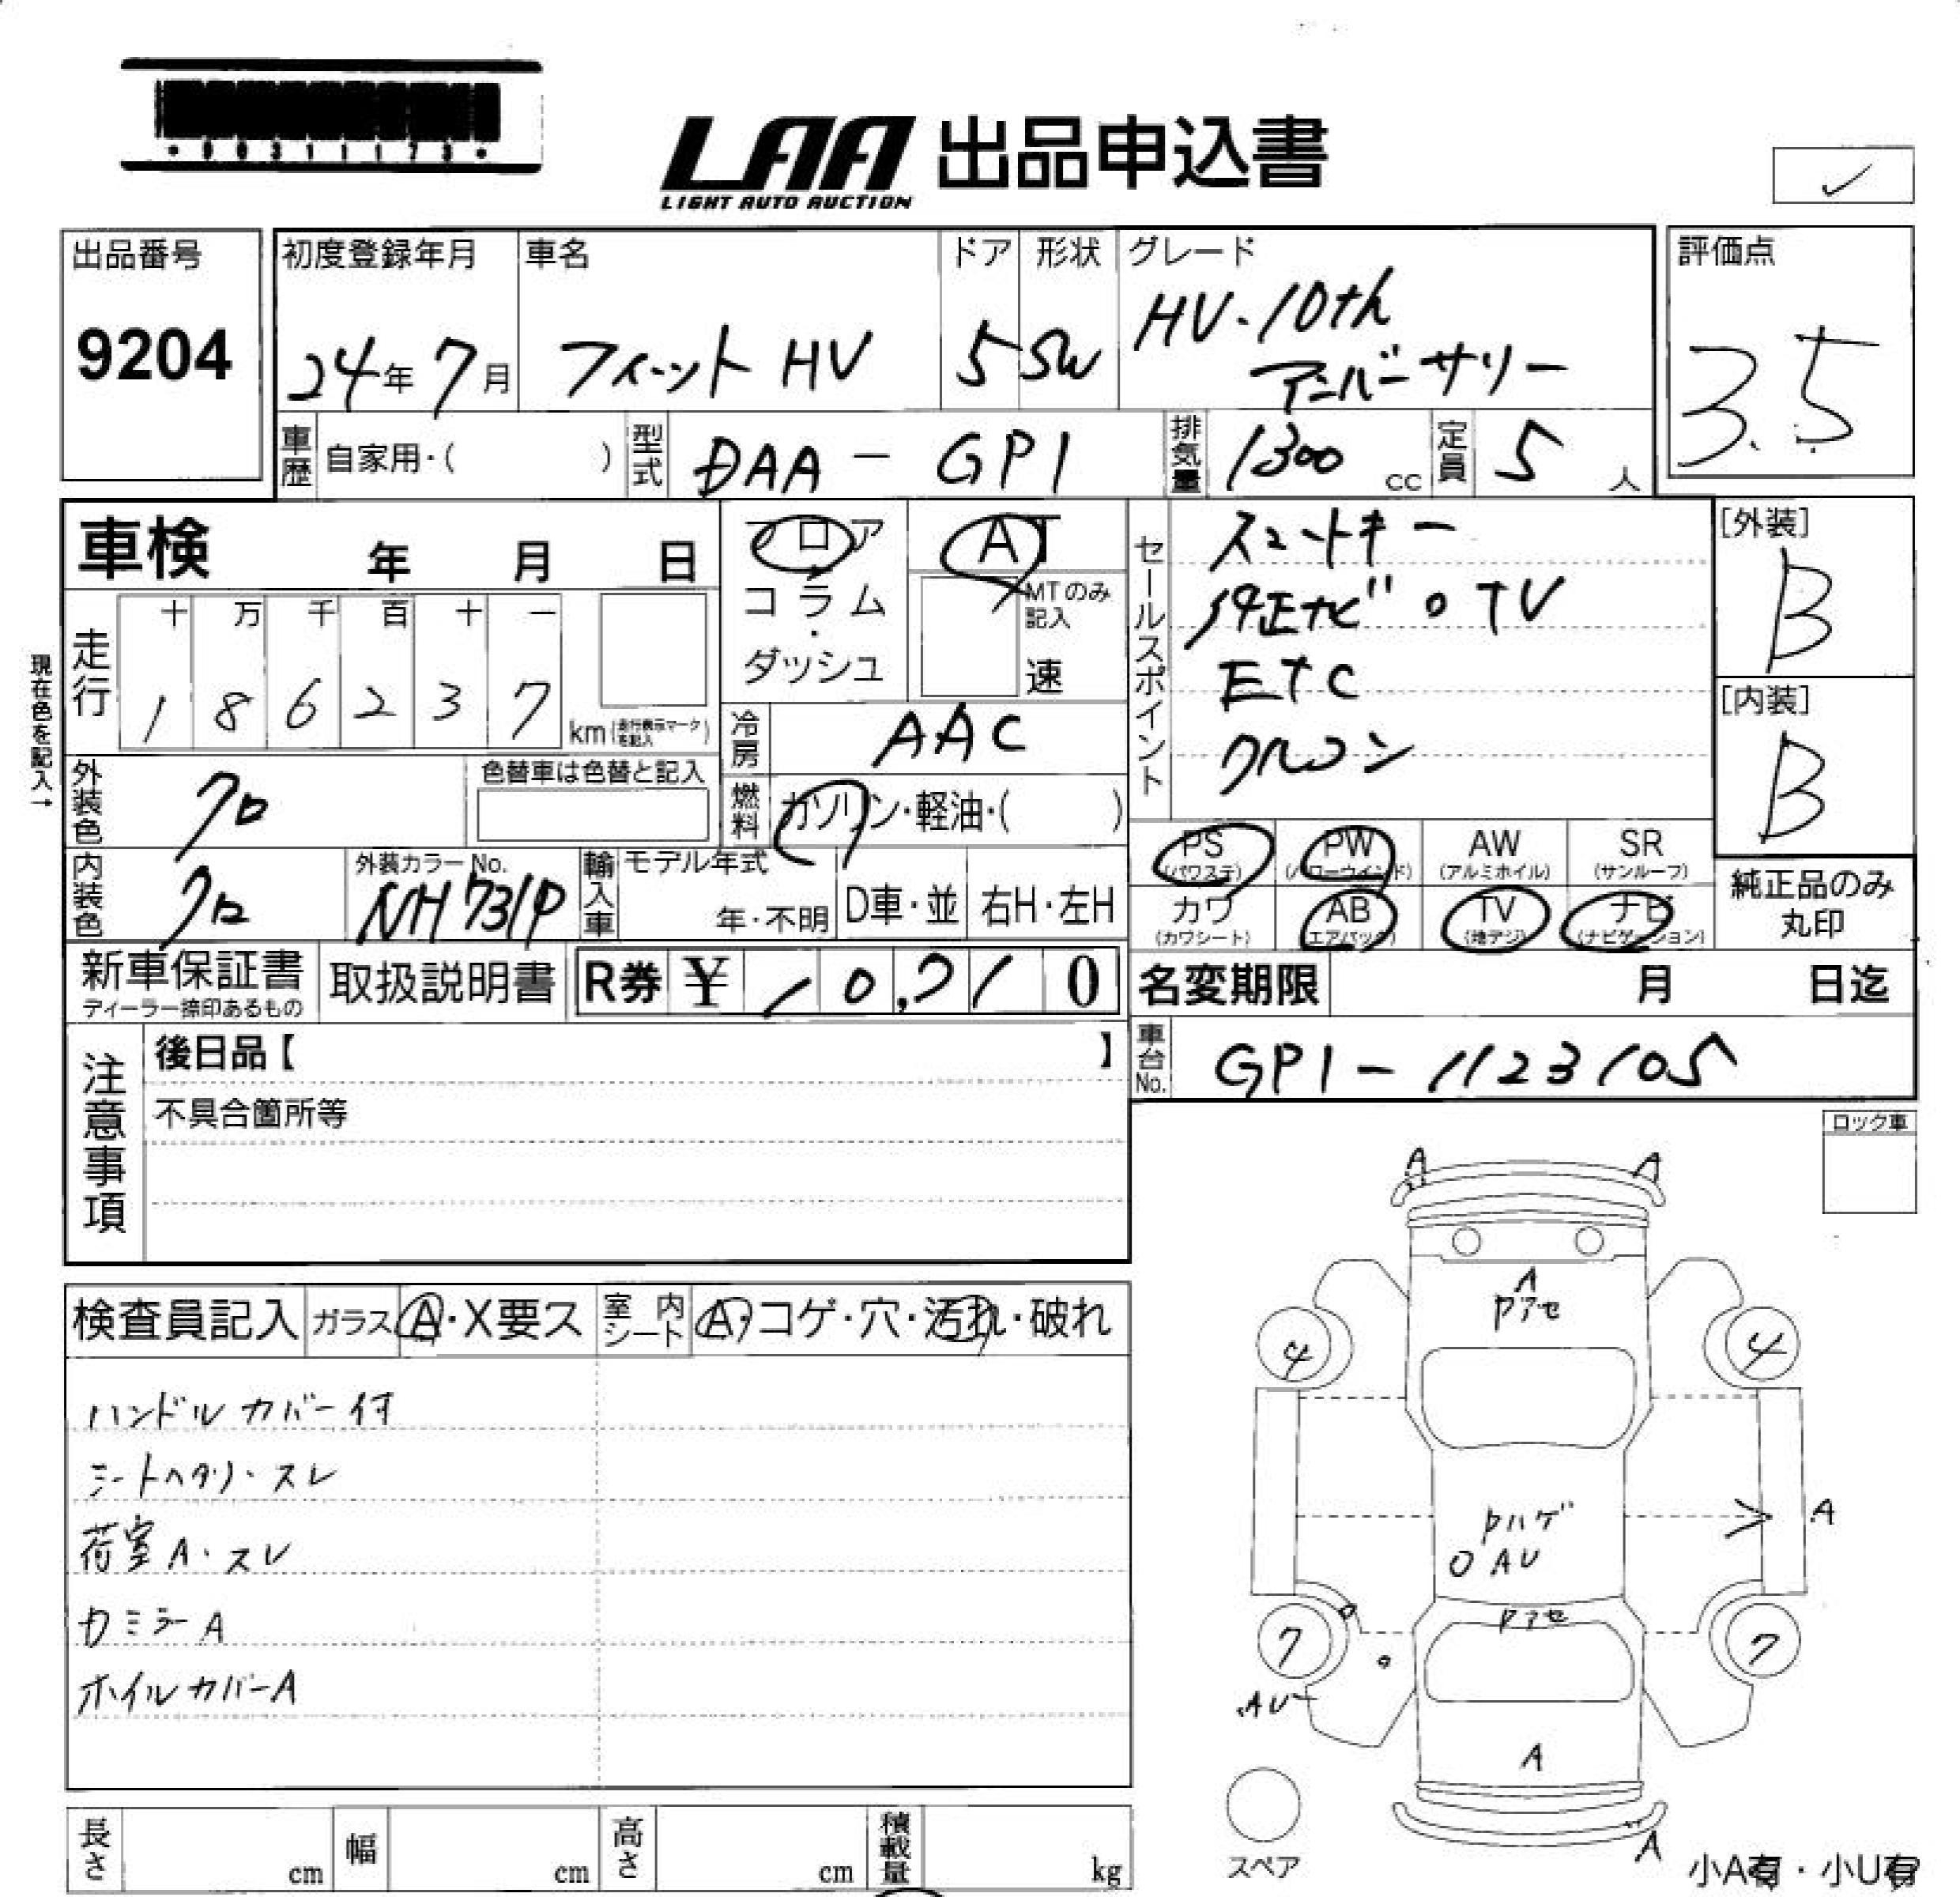 *00311173*
LAA 出品申込書
LIGHT AUTO AUCTION
出品番号
9204
初度登録年月
24年7月
車名
フィット HV
ドア
5
形状
SW
グレード
HV.10th
アニバーサリー
評価点
3.5
車歴
自家用・( )
型式
DAA-GP1
排気量
1300 cc
定員
5 人
車検 年 月 日
フロア
・
コラム
・
ダッシュ
AT
MTのみ
記入
速
セールスポイント
スマートキー
純正ナビ。TV
ETC
クルコン
[外装]
B
[内装]
B
現在色を記入→
走行
十 万 千 百 十 一
1 8 6 2 3 7
km(走行表示マークを記入)
冷房
AAC
外装色
クロ
色替車は色替と記入
燃料
ガソリン・軽油・( )
内装色
クロ
外装カラーNo.
NH731P
輸入車
モデル年式
年・不明
D車・並
右H・左H
PS
(パワステ)
PW
(パワーウインド)
AW
(アルミホイル)
SR
(サンルーフ)
カワ
(カワシート)
AB
(エアバック)
TV
(地デジ)
ナビ
(ナビゲーション)
純正品のみ
丸印
新車保証書
ディーラー捺印あるもの
取扱説明書
R券 ¥ 10,210
名変期限 月 日迄
車台No.
GP1-1123105
注意事項
後日品【 】
不具合箇所等
ロック車
検査員記入
ガラス
A・X要ス
室内シート
A・コゲ・穴・汚れ・破れ
ハンドルカバー付
シートヘタリ・スレ
荷室A・スレ
カミラーA
ホイルカバーA
A A
A
Pアセ
4 4
A
Pハゲ
AU
Pアセ
7 7
AU
A
A
スペア
小A有・小U有
長さ cm
幅 cm
高さ cm
積載量 kg